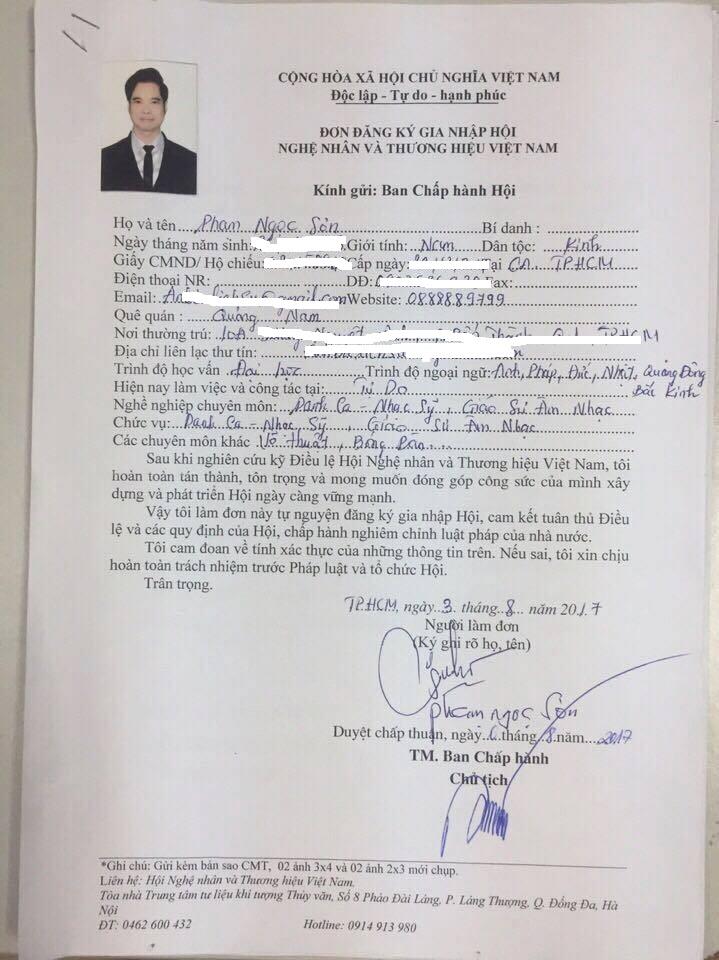 CỘNG HÒA XÃ HỘI CHỦ NGHĨA VIỆT NAM
Độc lập - Tự do - hạnh phúc
ĐƠN ĐĂNG KÝ GIA NHẬP HỘI
NGHỆ NHÂN VÀ THƯƠNG HIỆU VIỆT NAM
Kính gửi: Ban Chấp hành Hội
Họ và tên.... Phan Ngọc Sơn Bí danh :
Ngày tháng năm sinh: Giới tính: Nam Dân tộc: Kinh
Giấy CMND/ Hộ chiếu: Cấp ngày: Tại CA. TPHCM
Điện thoại NR: DĐ: Fax:
Email: @gmail.com Website: 0888889799
Quê quán : Quảng Nam
Nơi thường trú: TPHCM
Địa chỉ liên lạc thư tín:
Trình độ học vấn Đại học Trình độ ngoại ngữ: Anh, Pháp, Đức, Nhật, Quảng Đông
Bắc Kinh
Hiện nay làm việc và công tác tại: Tự Do
Nghề nghiệp chuyên môn: Danh Ca - Nhạc Sỹ, Giáo Sư Âm Nhạc
Chức vụ: Danh Ca - Nhạc Sỹ, Giáo Sư Âm Nhạc
Các chuyên môn khác Võ thuật, Bóng bàn
Sau khi nghiên cứu kỹ Điều lệ Hội Nghệ nhân và Thương hiệu Việt Nam, tôi
hoàn toàn tán thành, tôn trọng và mong muốn đóng góp công sức của mình xây
dựng và phát triển Hội ngày càng vững mạnh.
Vậy tôi làm đơn này tự nguyện đăng ký gia nhập Hội, cam kết tuân thủ Điều
lệ và các quy định của Hội, chấp hành nghiêm chỉnh luật pháp của nhà nước.
Tôi cam đoan về tính xác thực của những thông tin trên. Nếu sai, tôi xin chịu
hoàn toàn trách nhiệm trước Pháp luật và tổ chức Hội.
Trân trọng.
TPHCM, ngày..3. tháng..8.. năm 201.7
Người làm đơn
(Ký ghi rõ họ, tên)
phan ngọc Sơn
Duyệt chấp thuận, ngày 6 tháng..8.năm....2017
TM. Ban Chấp hành
Chủ tịch
*Ghi chú: Gửi kèm bản sao CMT, 02 ảnh 3x4 và 02 ảnh 2x3 mới chụp.
Liên hệ: Hội Nghệ nhân và Thương hiệu Việt Nam.
Tòa nhà Trung tâm tư liệu khí tượng Thủy văn, Số 8 Pháo Đài Láng, P. Láng Thượng, Q. Đống Đa, Hà
Nội
ĐT: 0462 600 432 Hotline: 0914 913 980